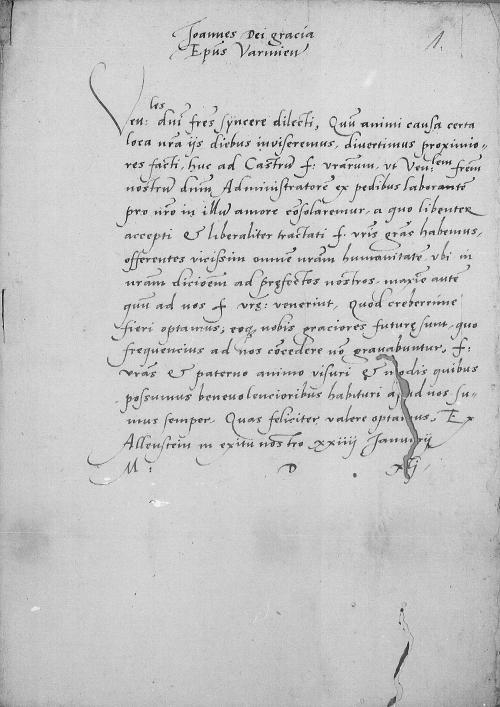 Joannes Dei gracia
Epus Varmien
1.
Ven:les dni fres syncere dilecti, Quu animi causa certa
loca nra ijs diebus inviseremus, divertimus proximio-
res facti, huc ad Castru f: vrarum, vt Ven:lem frem
nostru dnm Administratore ex pedibus laborante
pro nro in illu amore cosolaremur, a quo libenter
accepti & liberaliter tractati f. vris gras habemus,
offerentes vicissim omne nram humanitate vbi in
nram dicioem ad prefectos nostros, maxie aute
quu ad nos f vre: venerint. Quod creberrime
fieri optamus, eoq nobis graciores future sunt, quo
frequencius ad nos cocedere no gravabuntur, f:
vras & paterno animo visuri & modis quibus
possumus benevolencioribus habituri apud nos su-
mus semper. Quas feliciter valere optamus, Ex
Allenstein in exitu nostro xxiiij Januarij
M: D xij